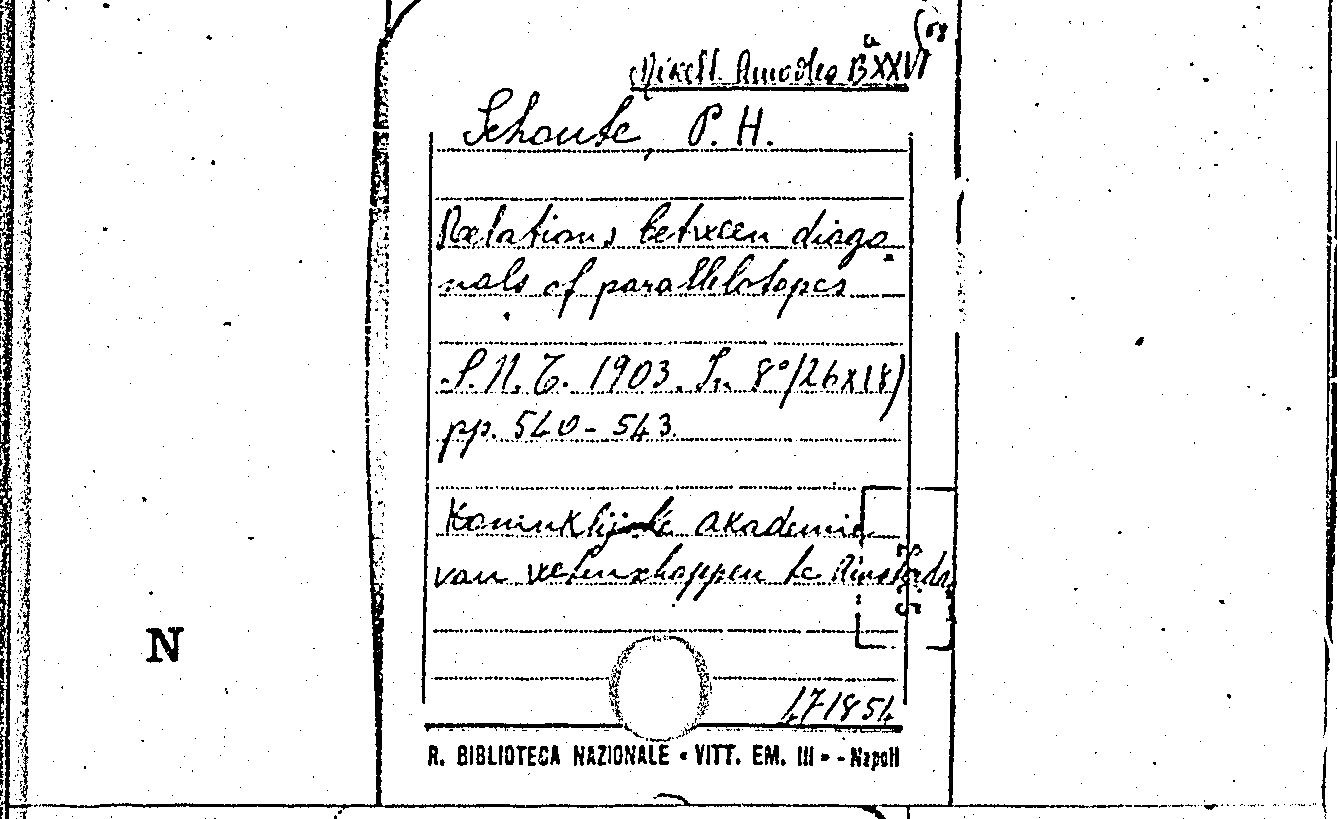 (58
Miscell. Amodeo Bª XXVI
Schoute, P. H.
Relations between diago
nals of parallelotopes
S.N.T. 1903. In 8°(26x18)
pp. 540-543.
Koninklijke Akademie
van wetenschappen te Amsterda
N
471854
R. BIBLIOTECA NAZIONALE « VITT. EM. III » - Napoli